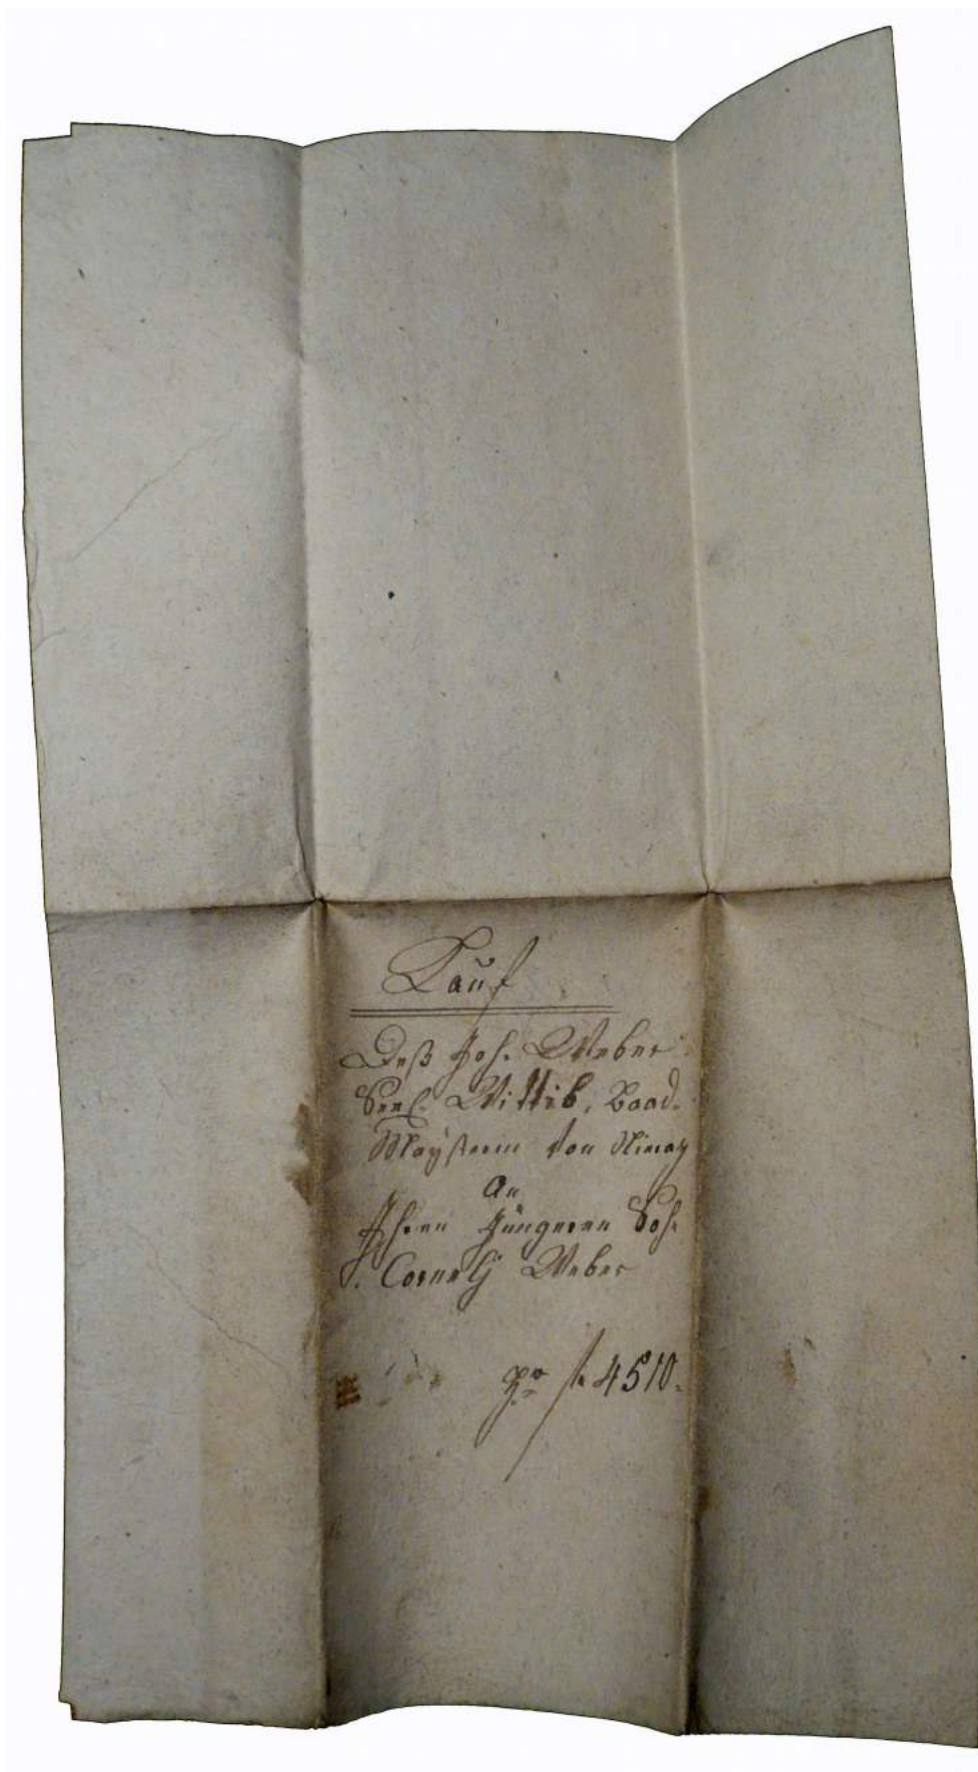 Kauf
Deß Joh. Weber
Seel. Wittib, Baad-
Mäysterin Von
An
Ihren Jüngeren Soh.
Cornelj Weber
pr. f. 4510.